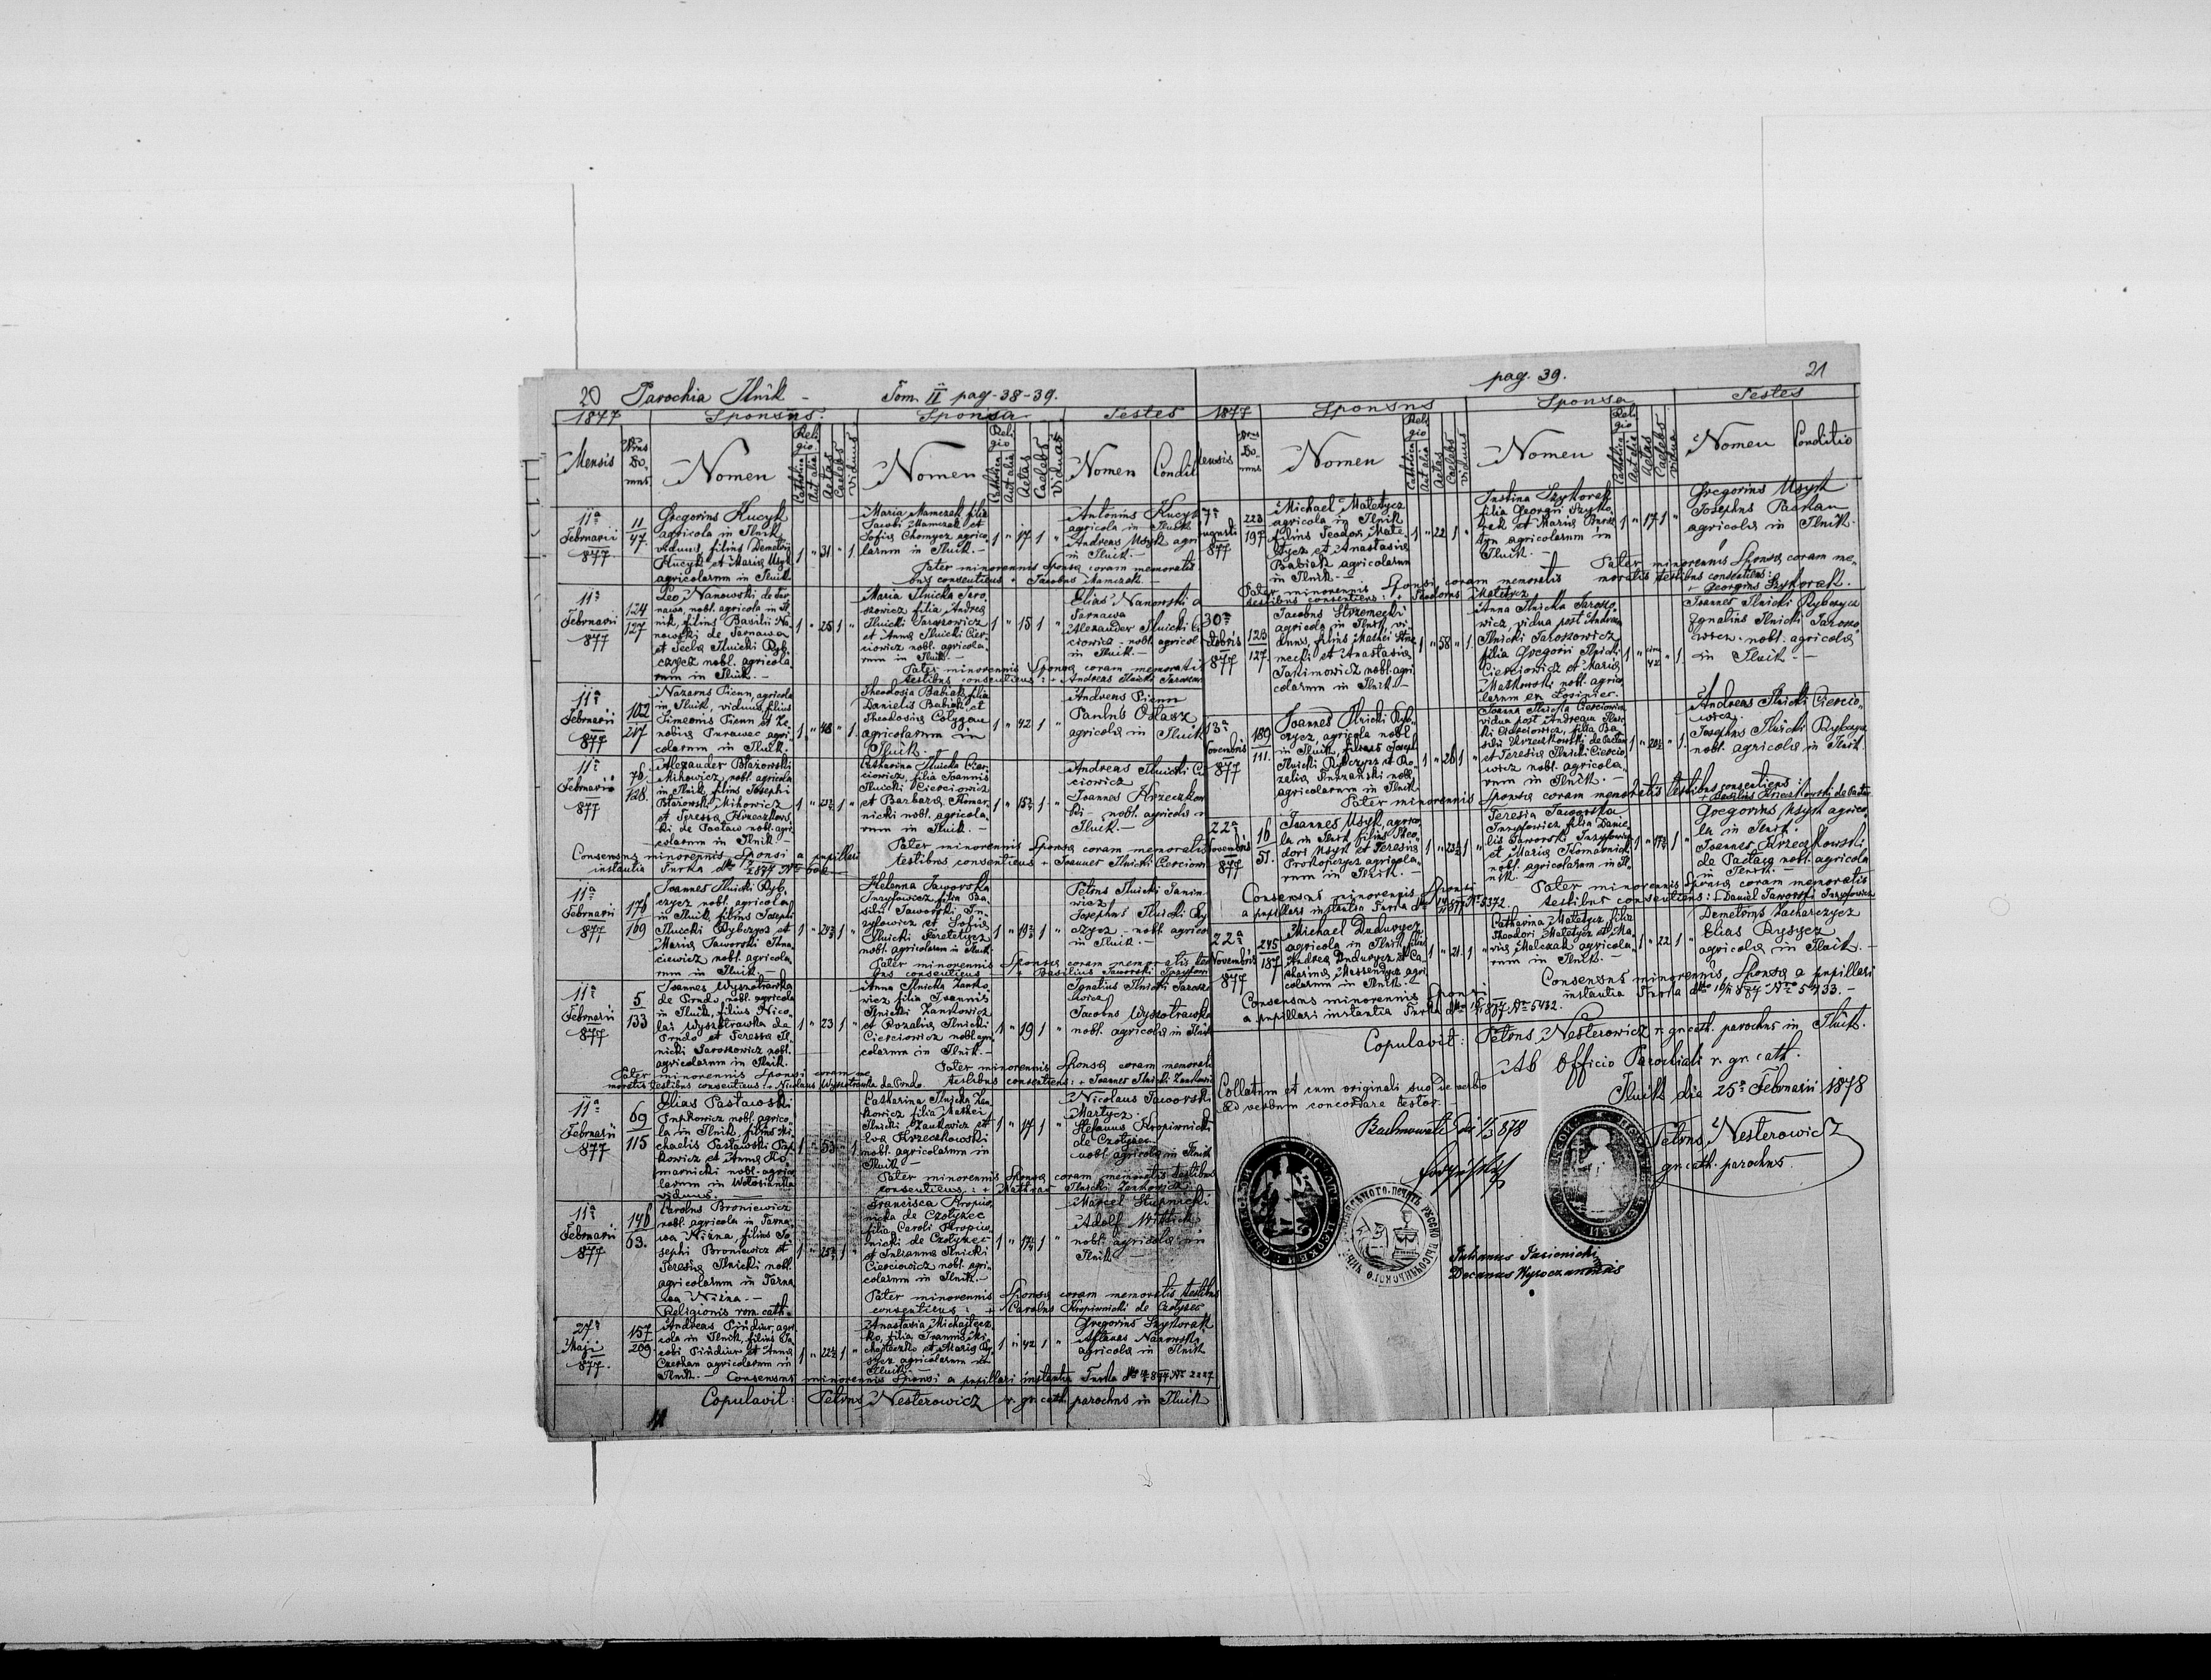 20 Parochia Ilnik - Tom. II pag. 38-39.
1877 Sponsus. Sponsa Testes
Mensis Nrus Domus Nomen Religio Catholica Aut alia Aetas Caelebs Viduus Nomen Religio Catholica Aut alia Aetas Caelebs Vidua Nomen Condit
11a Februarii 877
11 47.
Gregorius Kucyk
agricola in Ilnik
viduus, filius Demetrii
Kucyk et Maria Usyk
agricolarum in Ilnik
1 " 31 " 1.
Maria Mamczak filia
Jacobi Mamczak et
Sofia Chomycz agrico-
larum in Ilnik.-
1 " 17 1 "
Antonius Kucyk
agricola in Ilnik
Andreas Usyk agri
in Ilnik.-
Pater minorennis Sponsa coram memoratis
bus consentiens + Jacobus Mamczak.-
11a Februarii 877
124 127
Leo Nanowski de Tar-
nawa, nobl. agricola in Il-
nik, filius Basilii Na-
nowski de Tarnawa
et Tecla Ilnicki Ryb-
czycz nobl. agricola
rum in Ilnik.-
1 " 25 1 "
Maria Ilnicka Jaro-
szowicz filia Andrea
Ilnicki Jaroszowicz
et Anna Ilnicki Cier-
ciowicz nobl. agricola-
rum in Ilnik.-
1 " 15 1 "
Elias Nanowski d
Tarnawa
Alexander Ilnicki Ci
ciowicz - nobl. agricol
in Ilnik.-
Pater minorennis Sponsa coram memoratis
testibus consentiens : + Andreas Ilnicki Jaroszow
11a Februarii 877
102 217
Nazarus Pienn, agricola
in Ilnik, viduus, filius
Simeonis Pienn et Ze-
nobia Purawec agri-
colarum in Ilnik.
1 " 48 " 1.
Theodosia Babiak, filia
Danielis Babiak et
Theodosia Cołygan
agricolarum in
Ilnik.
1 " 42 1 "
Andreas Pienn
Paulus Odasz
agricola in Ilnik
11a Februarii 877
76. 128.
Alexander Błazowski
Mihowicz, nobl. agricola
in Ilnik filius Josephi
Błazowski Mihowicz
et Teressa Krzeczkows-
ki de Pactaw nobl. agri-
colarum in Ilnik -
1 " 23½ 1 "
Catharina Ilnicka Cier-
ciowicz, filia Joannis
Ilnicki Cierciowicz
et Barbara Komar-
nicki nobl. agricola-
rum in Ilnik. -
1 " 15½ 1 "
Andreas Ilnicki Ci
ciowicz
Joannes Krzeczkow
ki - nobl. agricola in
Ilnik.-
Consensus minorennis Sponsi a pupillari
instantia Turka
Pater minorennis Sponsa coram memoratis
testibus consentiens + Joannes Ilnicki Cierciowi
11a Februarii 877
176 169
Joannes Ilnicki Ryb-
czycz nobl. agricola
in Ilnik filius Josephi
Ilnicki Rybczycz et
Maria Jaworski Ihna-
ciewicz nobl. agricola
rum in Ilnik. -
1 " 24½ 1 "
Helenna Jaworska
Inzyłowicz filia Ba-
silii Jaworski In-
zyłowicz et Sofia
Ilnicki Feretetycz
nobl. agricolarum in Ilnik
1 " 19½ 1 "
Petrus Ilnicki Janin
wicz
Josephus Ilnicki Ry
czycz - nobl agrico
in Ilnik. -
Pater minorennis Sponsa coram memoratis tes
bus consentiens - + Basilius Jaworski Inzyłowi
11a Februarii 877
5 133
Joannes Wysotrawka
de Prudo, nobl. agricola
in Ilnik, filius Nico-
lai Wysotrawka da
Prudo et Teressa Il-
nicki Jaroszowicz nobl.
agricolarum in Ilnik.
1 " 23 1 "
Anna Ilnicka Zanko-
wicz filia Joannis
Ilnicki Zankowicz
et Rozalia Ilnicki
Cierciowicz nobl. agri-
colarum in Ilnik.-
1 " 19 1 "
Ignatius Ilnicki Jaroszo
wicz
Jacobus Wysotrawka
nobl. agricola in Ilnik
Pater minorennis Sponsi coram me-
moratis testibus consentiens + Nicolaus Wysotrawka da Prudo.
Pater minorennis Sponsa coram memorati
testibus consentiens : + Joannes Ilnicki Zankowi
11a Februarii 877
69 115
Elias Pasławski
Pupkowicz nobl. agrico-
la in Ilnik, filius Mi-
chaelis Pasławski Pup-
kowicz et Anna Ko-
marnicki nobl. agrico-
larum in Wołosianka
viduus. -
1 " 53 " 1
Catharina Ilnicka Zan-
kowicz filia Mathei
Ilnicki Zankowicz et
Eva Krzeczkowski
nobl. agricolarum in
Ilnik -
1 " 17 1 "
Nicolaus Jaworski
Martycz
Stefanus Kropiwnicki
de Czołyzec
nobl. agricola in Ilnik
Pater minorennis Sponsa coram memoratis testibus
consentiens : + Matheus Ilnicki Zankowicz
11a Februarii 877
146 63.
Carolus Broniewicz
nobl. agricola in Tarna-
wa Niżna, filius Jo-
sephi Broniewicz et
Teresia Ilnicki nobl.
agricolarum in Tarna
wa Niżna.-
Religionis rom. cath.
1 " 25½ 1 "
Francisca Kropiw-
nicka de Czołyzec
filia Caroli Kropiw-
nicki de Czołyzec
et Julianna Ilnicki
Cierciowicz nobl. agri-
colarum in Ilnik.-
1 " 17½ 1 "
Marcel Stupnicki
Adolf Wittlicki
nobl. agricola in
Ilnik
Pater minorennis Sponsa coram memoratis testibus
consentiens : + Carolus Kropiwnicki de Czołyzec
27a Maji 877.
157 209
Andreas Pindiur, agri
cola in Ilnik, filius Ja-
cobi Pindiur et Anna
Czerhan agricolarum in
Ilnik.-
1 " 22½ 1 "
Anastasia Michajłecz-
ko, filia Joannis Mi-
chajłeczko et Maria Ry-
sycz agricolarum in
Ilnik.-
1 " 42 1 "
Gregorius Szykorak
Aftanas Nanowski
agricola in Ilnik
Consensus minorennis Sponsi a pupillari instantia Turka
Copulavit: Petrus Nesterowicz r. gr. cath. parochus in Ilnik
pag. 39. 21
1877 Sponsus Sponsa Testes
Mensis Nrus Domus Nomen Religio Catholica Aut alia Aetas Caelebs Viduus Nomen Religio Catholica Aut alia Aetas Caelebs Vidua Nomen Conditio
7a Augusti 877
223 197
Michael Matetycz
agricola in Ilnik
filius Teodori Mate-
tycz et Anastasia
Babiak agricolarum
in Ilnik.-
1 " 22 1 "
Justina Szykorak
filia Georgii Szyko-
rak et Maria
agricolarum in
Ilnik. -
1 " 17 1 "
Gregorius Usyk
Josephus Pachan
agricola in Ilnik.
Pater minorennis Sponsi coram memoratis
testibus consentiens : + Theodorus Matetycz
Pater minorennis Sponsa coram me-
moratis testibus consentiens:
+ Georgius Szykorak.
30a Octobris 877
123 127.
Jacobus Strzemecki
agricola in Ilnik, vi-
duus, filius Mathei Strze-
mecki et Anastasia
Jakimowicz nobl. agri
colarum in Ilnik -
1 " 58 " 1.
Anna Ilnicka Jaroszo-
wicz, vidua post Andream
Ilnicki Jaroszowicz
filia Gregorii Ilnicki
Cierciowicz et Maria
Matkowski nobl. agrico
larum ex Łosiniec.
1 " 42 " 1.
Joannes Ilnicki Rybczycz
Ignatius Ilnicki Jaroszo-
wicz - nobl. agricola
in Ilnik -
13a Novembris 877
189 111.
Joannes Ilnicki Ryb-
czycz, agricola nobl.
in Ilnik, filius Josephi
Ilnicki Rybczycz et Ro-
zalia Turzański nobl.
agricolarum in Ilnik
1 " 26 1 "
Joanna Ilnicka Cierciowicz
vidua post Andream Ilnic-
ki Cierciowicz, filia Ba-
silii Krzeczkowski de Pactaw
et Teresia Ilnicki Ciercio-
wicz nobl. agricola
rum in Ilnik. -
1 " 20½ " 1.
Andreas Ilnicki Ciercio-
wicz.
Josephus Ilnicki Rybczycz
nobl. agricola in Ilnik.
Pater minorennis Sponsa coram memoratis testibus consentiens :
+ Basilius Krzeczkowski de Pactaw
22a Novembris 877
16 51.
Joannes Usyk, agrico-
la in Ilnik filius Theo-
dori Usyk et Teresia
Prokopczycz agricola-
rum in Ilnik. -
1 " 23½ 1 "
Teresia Jaworska
Inzyłowicz filia Danie-
lis Jaworski Inzyłowicz
et Maria Komarnicki
nobl. agricolarum in Il-
nik.
1 " 17½ 1 "
Gregorius Usyk agrico-
la in Ilnik.
Joannes Krzeczkowski
de Pactaw nobl. agricola
in Ilnik.-
Consensus minorennis Sponsi
a pupillari instantia Turka Nr. 5372.
Pater minorennis Sponsa coram memoratis
testibus consentiens : + Daniel Jaworski Inzyłowicz
22a Novembris 877
245 187
Michael Dudurycz
agricola in Ilnik filius
Andrea Dudurycz et Ca-
tharina agri-
colarum in Ilnik.-
1 " 21. 1 "
Catharina Matetycz filia
Theodori Matetycz et Ma-
ria Malczak agricola-
rum in Ilnik. -
1 " 22 1 "
Demetrius Zacharczycz
Elias Rysycz
agricola in Ilnik. -
Consensus minorennis Sponsi
a pupillari instantia Turka Nro 5432.
Consensus minorennis Sponsa a pupillari
instantia Turka Nro 5433. -
Copulavit: Petrus Nesterowicz r. gr. cath. parochus in Ilnik.
Ab Officio Parochiali r. gr. cath.
Ilnik die 25a Februarii 1878
Collatum et cum originali suo de verbo
ad verbum concordare testor. -
Petrus Nesterowicz
gr. cath. parochus.
Julianus Jasienicki
Decanus Wysoczanensis